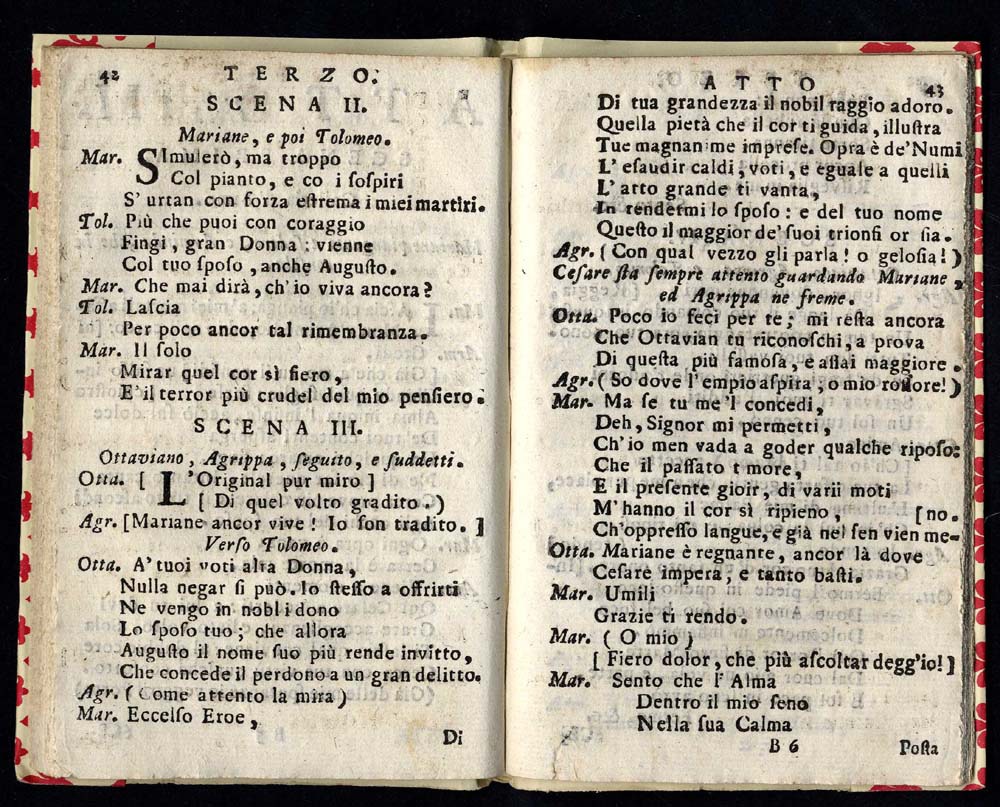 42
TERZO.
SCENA II.
Mariane, e poi Tolomeo.
Mar. SImulerò, ma troppo
Col pianto, e co i ſoſpiri
S' urtan con forza eſtrema i miei martiri.
Tol. Più che puoi con coraggio
Fingi, gran Donna: vienne
Col tuo ſpoſo, anche Auguſto.
Mar. Che mai dirà, ch'io viva ancora?
Tol. Laſcia
Per poco ancor tal rimembranza.
Mar. Il ſolo
Mirar quel cor sì fiero,
E' il terror più crudel del mio penſiero.
SCENA III.
Ottaviano, Agrippa, ſeguito, e ſuddetti.
Otta. [ L'Original pur miro ]
[ Di quel volto gradito. )
Agr. [Mariane ancor vive! Io ſon tradito. ]
Verſo Tolomeo.
Otta. A' tuoi voti alta Donna,
Nulla negar ſi può. Io ſteſſo a offrirti
Ne vengo in nobli dono
Lo ſpoſo tuo; che allora
Auguſto il nome ſuo più rende invitto,
Che concede il perdono a un gran delitto.
Agr. (Come attento la mira)
Mar. Eccelſo Eroe,
Di
ATTO
43
Di tua grandezza il nobil raggio adoro.
Quella pietà che il cor ti guida, illuſtra
Tue magnan me impreſe. Opra è de'Numi
L' eſaudir caldi, voti, e eguale a quelli
L' atto grande ti vanta,
In rendetmi lo ſpoſo: e del tuo nome
Queſto il maggior de' ſuoi trionfi or ſia.
Agr. ( Con qual vezzo gli parla! o geloſia! )
Ceſare ſta ſempre attento guardando Mariane,
ed Agrippa ne freme.
Otta. Poco io feci per te; mi reſta ancora
Che Ottavian tu riconoſchi, a prova
Di queſta più famoſa, e aſſai maggiore.
Agr. ( So dove l'empio aſpira, o mio roſſore! )
Mar. Ma ſe tu me'l concedi,
Deh, Signor mi permetti,
Ch'io men vada a goder qualche ripoſo:
Che il paſſato t more,
E il preſente gioir, di varii moti
M'hanno il cor sì ripieno, [no.
Ch'oppreſſo langue, e già nel ſen vien me-
Otta. Mariane è regnante, ancor là dove
Ceſare impera, e tanto baſti.
Mar. Umili
Grazie ti rendo.
Mar. ( O mio )
[ Fiero dolor, che più aſcoltar degg'io! ]
Mar. Sento che l' Alma
Dentro il mio ſeno
Nella ſua Calma
B 6
Poſta